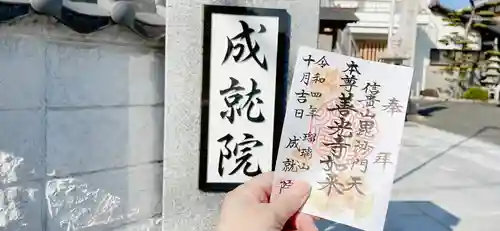 成就院
奉拝
信貴山毘沙門天
本尊善光寺如来
瑠璃山
成就院
令和四年
十月吉日